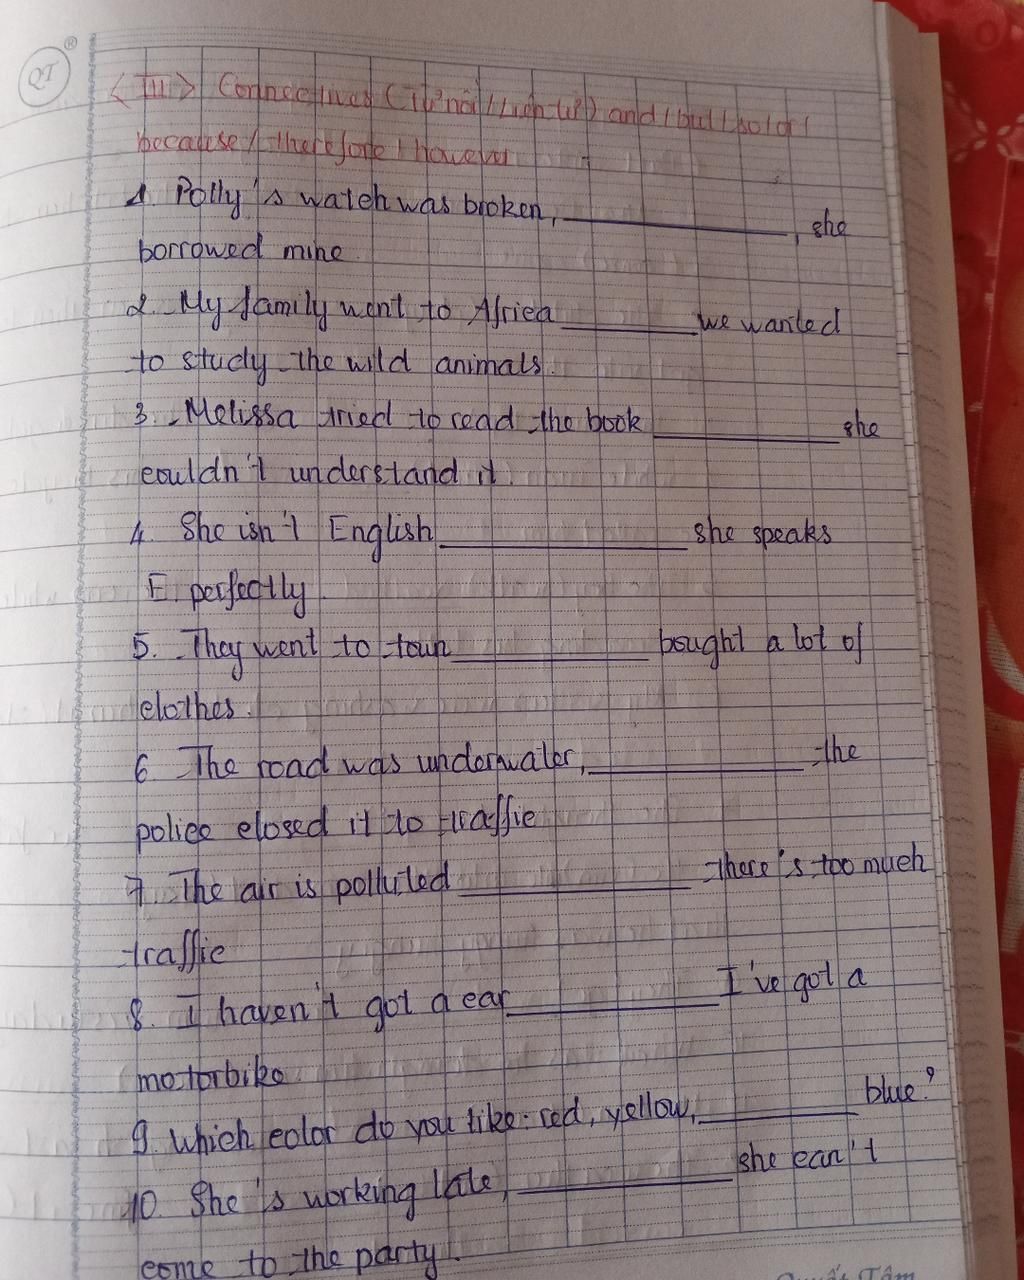 QT ®
<III> Connectives (Từ nối / Liên từ) and / but / so / or /
because / therefore / however
1. Polly's watch was broken, ________, she
borrowed mine.
2. My family went to Africa ________ we wanted
to study the wild animals.
3. Melissa tried to read the book ________ she
couldn't understand it.
4. She isn't English ________ she speaks
E. perfectly.
5. They went to town ________ bought a lot of
clothes.
6. The road was underwater, ________ the
police closed it to traffic
7. The air is polluted ________ there's too much
traffic
8. I haven't got a car ________ I've got a
motorbike.
9. Which color do you like: red, yellow, ________ blue?
10. She's working late, ________ she can't
come to the party.
Quyết Tâm